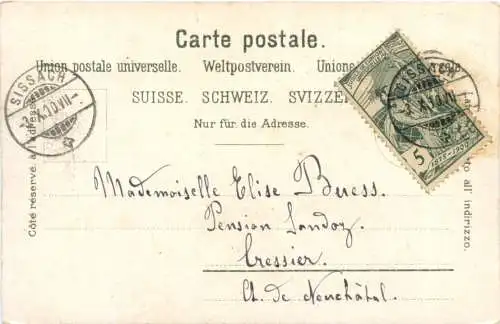 Carte postale.
Union postale universelle. Weltpostverein. Unione
SUISSE. SCHWEIZ. SVIZZER
Nur für die Adresse.
Côté réservé à l'adresse.
to all' indirizzo.
SISSACH
SISSACH
5
Mademoiselle Elise Buess.
Pension Landoz
Cressier
Ct. de Neuchâtel.